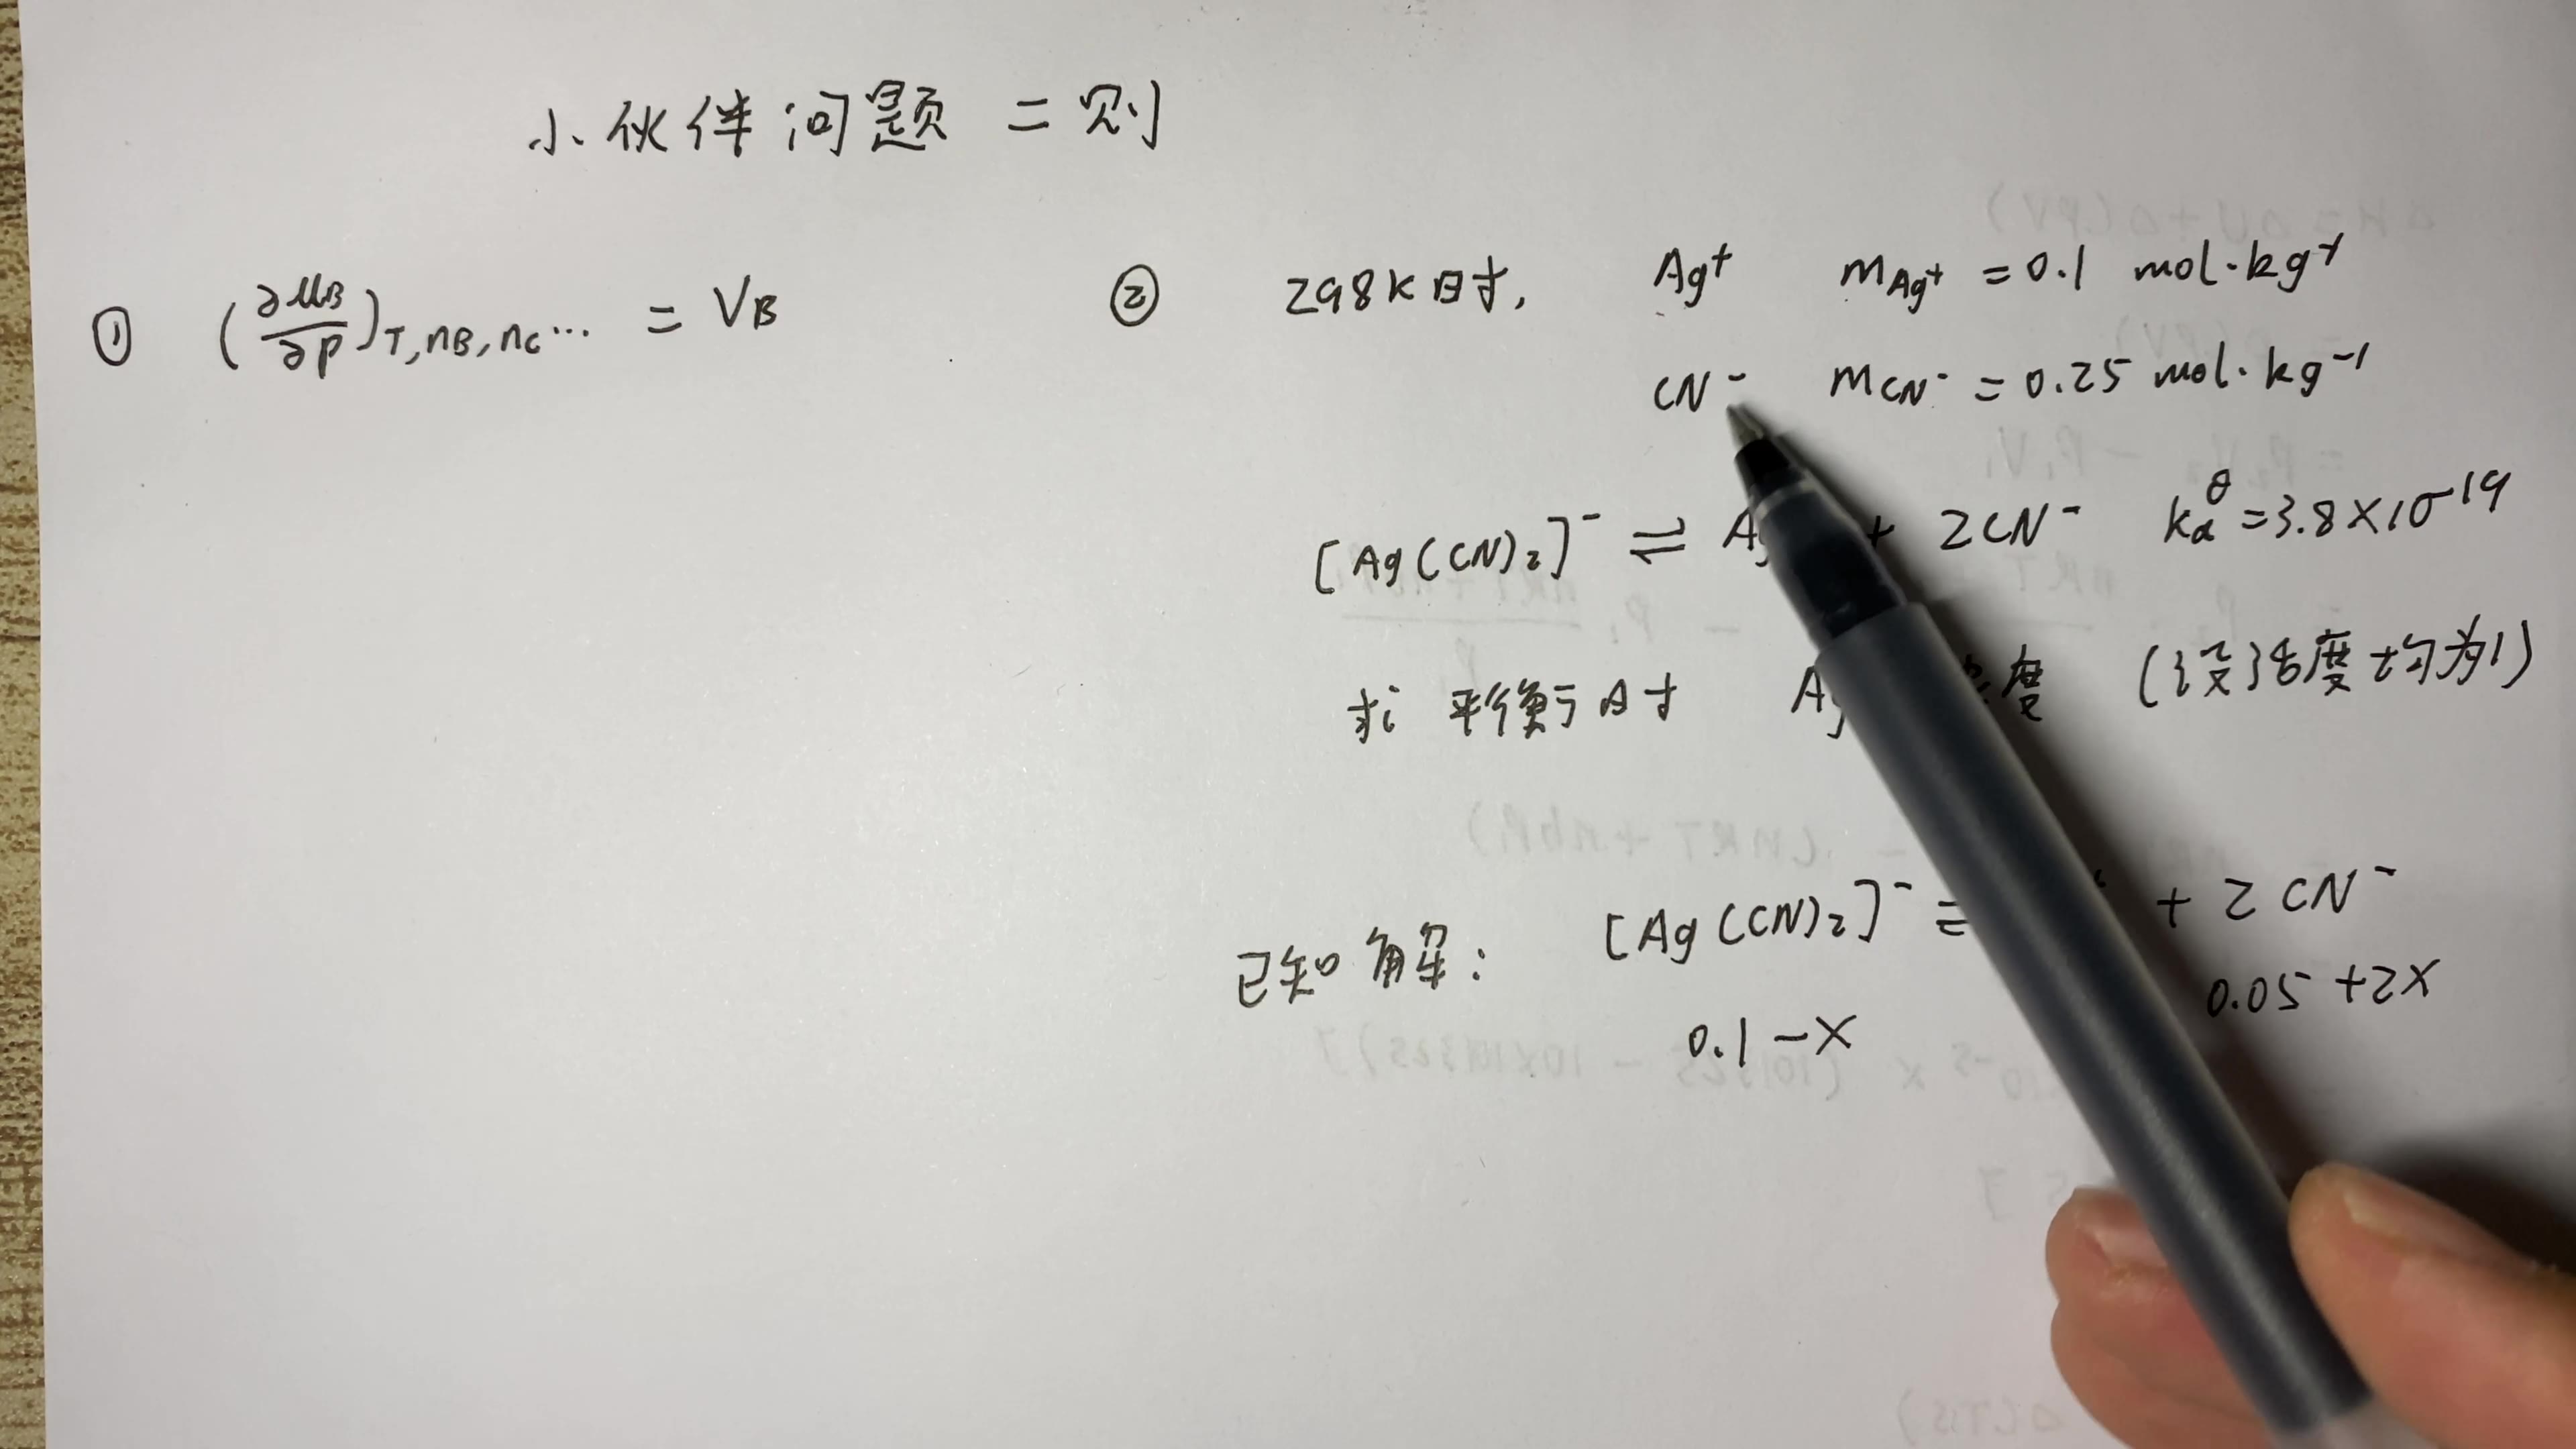 小伙伴问题二则
① (∂μB/∂P)T,nB,nC… = VB
② 298K时, Ag⁺ mAg⁺ = 0.1 mol·kg⁻¹
CN⁻ mCN⁻ = 0.25 mol·kg⁻¹
[Ag(CN)₂]⁻ ⇌ A + 2CN⁻ Ka^θ = 3.8×10⁻¹⁹
求 平衡时 A 度 (设活度均为1)
已知解: [Ag(CN)₂]⁻ = + 2CN⁻
0.1-x 0.05+2x